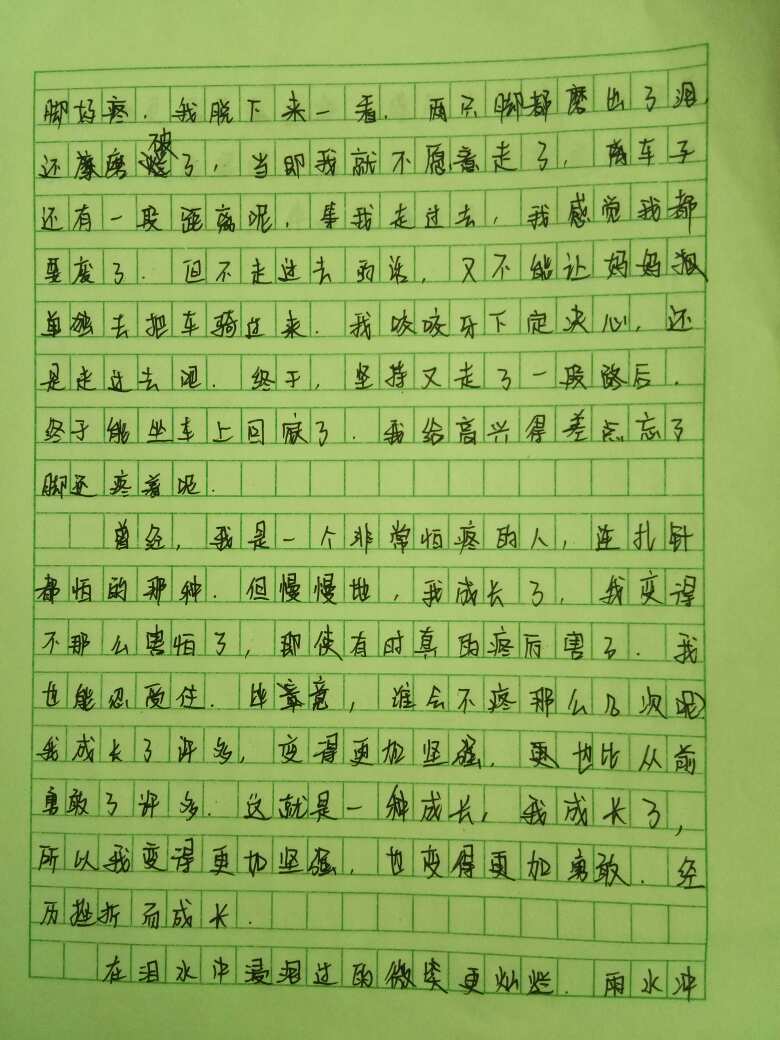 脚好疼．我脱下来一看．两只脚都磨出了泡，
还磨破了，当即我就不愿意走了，离车子
还有一段距离呢，我走过去，我感觉我都
要废了．但不走过去的话，又不能让妈妈
单独去把车骑过来．我咬咬牙下定决心，还
是走过去吧．终于，坚持又走了一段路后．
终于能坐车上回家了．我给高兴得差点忘了
脚还疼着呢．
曾经，我是一个非常怕疼的人，连扎针
都怕的那种．但慢慢地，我成长了，我变得
不那么害怕了，即使有时真的疼厉害了．我
也能忍受住．毕竟，谁会不疼那么几次呢
我成长了许多，变得更加坚强．更也比从前
勇敢了许多．这就是一种成长，我成长了，
所以我变得更加坚强．也变得更加勇敢．经
历挫折而成长．
在泪水冲浸泪过的微笑更灿烂．雨水冲